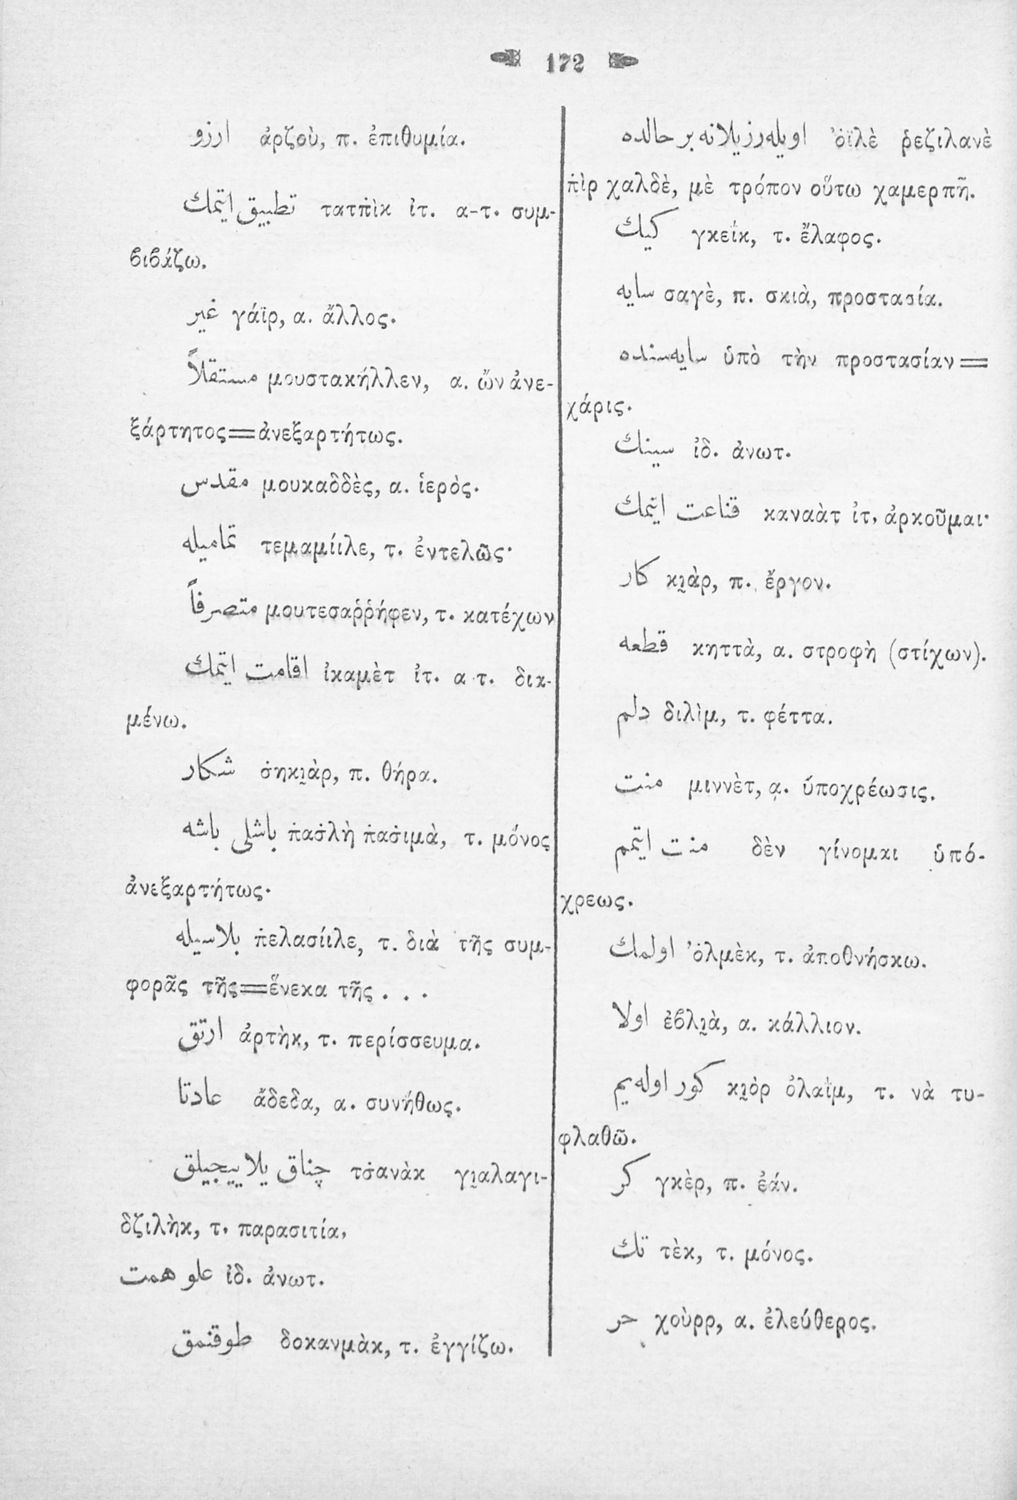 172
ارزو ἀρζοὺ, π. ἐπιθυμία.
تطبيق ايتمك τατπ̇ὶκ ἰτ. α-τ. συμ-
βιβάζω.
غير γάϊρ, α. ἄλλος.
مستقلاً μουστακήλλεν, α. ὢν ἀνε-
ξάρτητος=ἀνεξαρτήτως.
مقدس μουκαδδὲς, α. ἱερὸς.
تماميله τεμαμίιλε, τ. ἐντελῶς·
متصرفاً μουτεσαῤῥήφεν, τ. κατέχων
اقامت ايتمك ἰκαμὲτ ἰτ. α-τ. δια-
μένω.
شكار σ̇ηκι̯ὰρ, π. θήρα.
باشلى باشه π̇ασ̇λὴ π̇ασ̇ιμὰ, τ. μόνος
ἀνεξαρτήτως·
بلاسيله π̇ελασίιλε, τ. διὰ τῆς συμ-
φορᾶς τῆς=ἕνεκα τῆς . . .
ارتق ἀρτὴκ, τ. περίσσευμα.
عادتا ἄδεδα, α. συνήθως.
چناق يلاييجيلق τσ̇ανὰκ γι̯αλαγι-
δζιλὴκ, τ. παρασιτία,
علو همت ἰδ. ἀνωτ.
طوقنمق δοκανμὰκ, τ. ἐγγίζω.
اويله رزيلانه بر حالده ὀϊλὲ ῥεζιλανὲ
π̇ὶρ χαλδὲ, μὲ τρόπον οὕτω χαμερπῆ.
كيك γκεΐκ, τ. ἔλαφος.
سايه σαγὲ, π. σκιὰ, προστασία.
سايه سنده ὑπὸ τὴν προστασίαν=
χάρις.
سينك ἰδ. ἀνωτ.
قناعت ايتمك καναὰτ ἰτ, ἀρκοῦμαι·
كار κι̯ὰρ, π. ἔργον.
قطعه κηττὰ, α. στροφὴ (στίχων).
دلم διλὶμ, τ. φέττα.
منت μιννὲτ, α. ὑποχρέωσις.
منت ايتمم δὲν γίνομαι ὑπό-
χρεως.
اولمك ὀλμὲκ, τ. ἀποθνήσκω.
اولا ἐβλι̯ὰ, α. κάλλιον.
كور اوله يم κι̯ὸρ ὀλαΐμ, τ. νὰ τυ-
φλαθῶ.
كر γκὲρ, π. ἐάν.
تك τὲκ, τ. μόνος.
حر χοὺρρ, α. ἐλεύθερος.